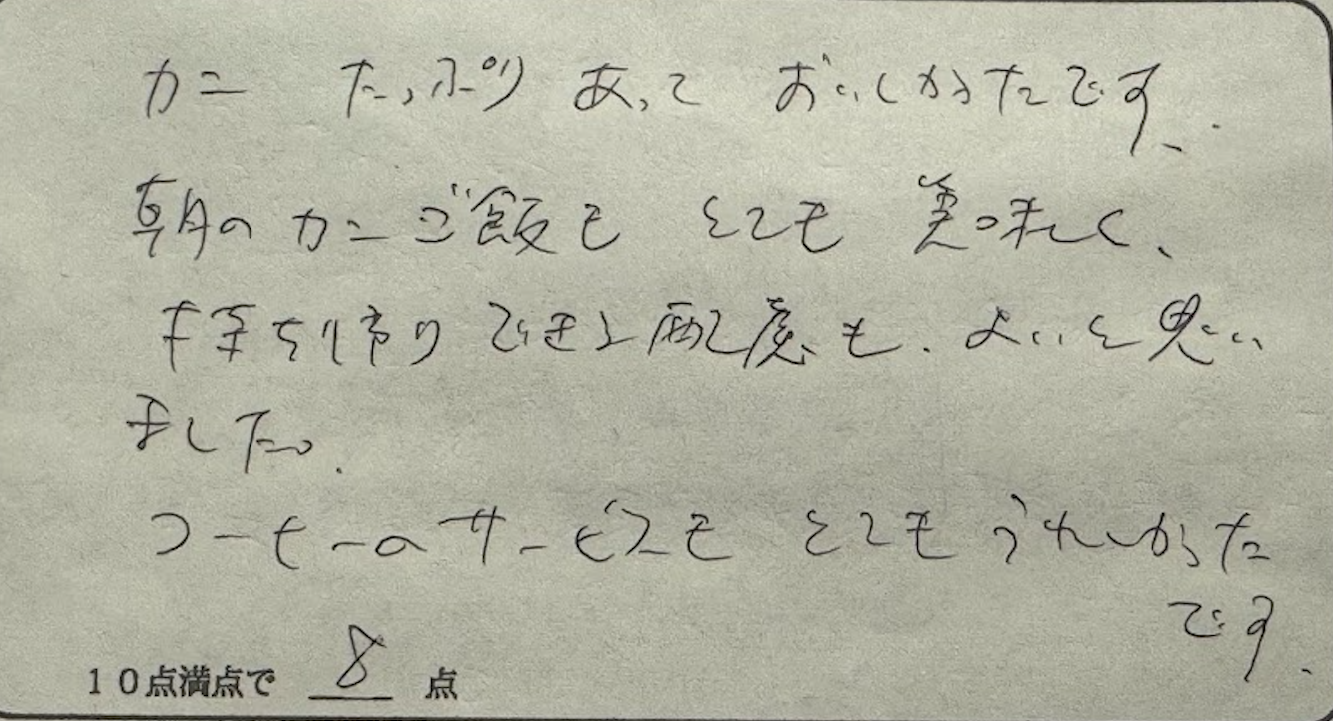 カニ たっぷり あって おいしかったです、
朝のカニご飯も とても 美味しく、
持ち帰りできる配慮も、よいと思い
ました。
コーヒーのサービスも とても うれしかった
です、
10点満点で 8 点